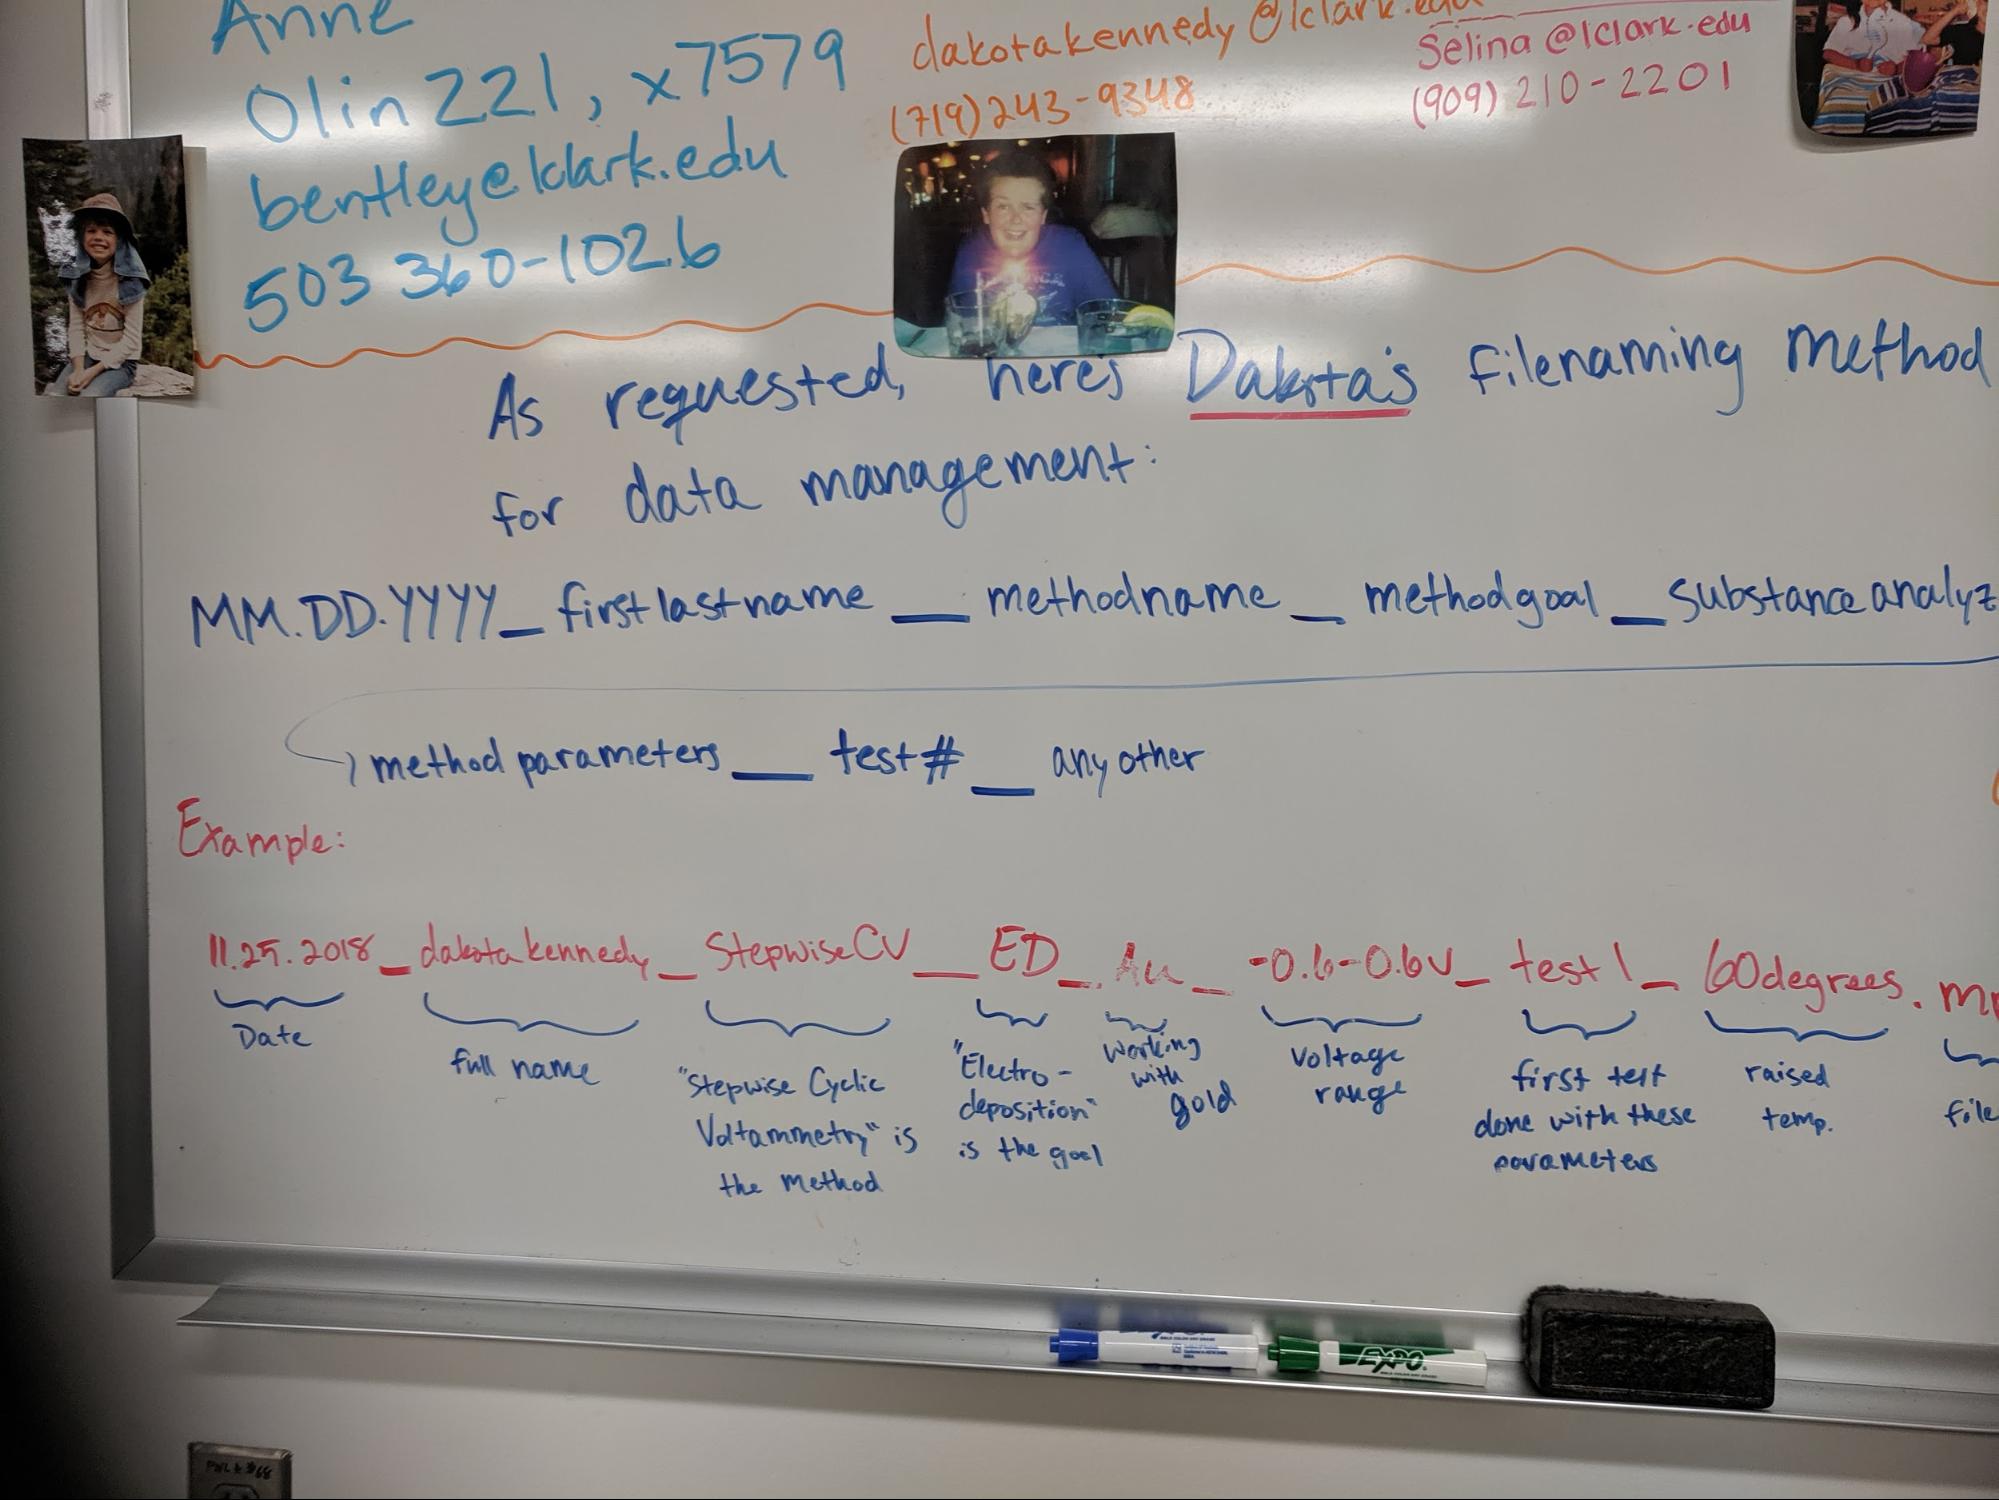 Anne
Olin 221, x7579
bentley@lclark.edu
503 360-1026
dakotakennedy@lclark.edu
(719) 243-9348
Selina@lclark.edu
(909) 210-2201
As requested, here's Dakota's filenaming method
for data management:
MM.DD.YYYY_firstlastname_methodname_methodgoal_substanceanalyz
methodparameters_test#_anyother
Example:
11.25.2018_dakotakennedy_StepwiseCV_ED_Au_-0.6-0.6V_test1_60degrees.m
Date
full name
"Stepwise Cyclic
Voltammetry" is
the method
"Electro-
deposition"
is the goal
working
with
gold
voltage
range
first test
done with these
parameters
raised
temp.
file
EXPO